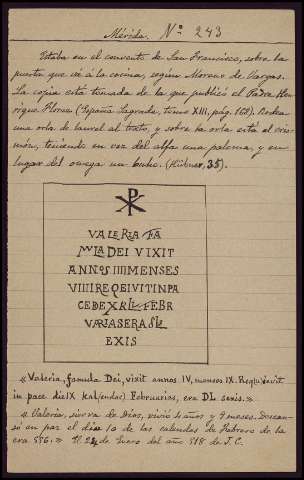 Mérida. Nº 243
Estaba en el convento de San Francisco, sobre la
puerta que vá á la cocina, según Moreno de Vargas.
La copia está tomada de la que publicó el Padre Hen-
rique Florez (España Sagrada, tomo XIII, pág. 168). Rodea
una orla de laurel al texto, y sobre la orla está el cris-
món, teniendo en vez del alfa una paloma, y en
lugar del omega un buho. (Hübner, 35).
VALERIA FA
MVLA DEI VIXIT
ANNOS IIII MENSES
VIIII REQEIVIT IN PA
CE D E X KL FEBR
SERA
EXIS
«Valeria, famula Dei, vixit annos IV, menses IX. Requievit
in pace die IX kal(endas) Februarias, era DL sexis.»
«Valeria, sierva de Dios, vivió 4 años y 9 meses. Descan-
só en paz el día 10 de las calendas de Febrero de la
era 556.» El 24 de Enero del año 518 de J.C.